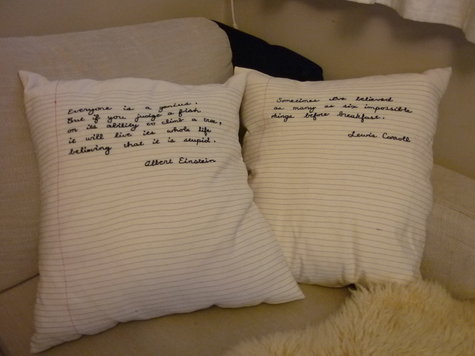 Everyone is a genius.
But if you judge a fish
on its ability to climb a tree,
it will live its whole life
believing that it is stupid.
Albert Einstein
Sometimes I've believed
as many as six impossible
things before breakfast.
Lewis Carroll